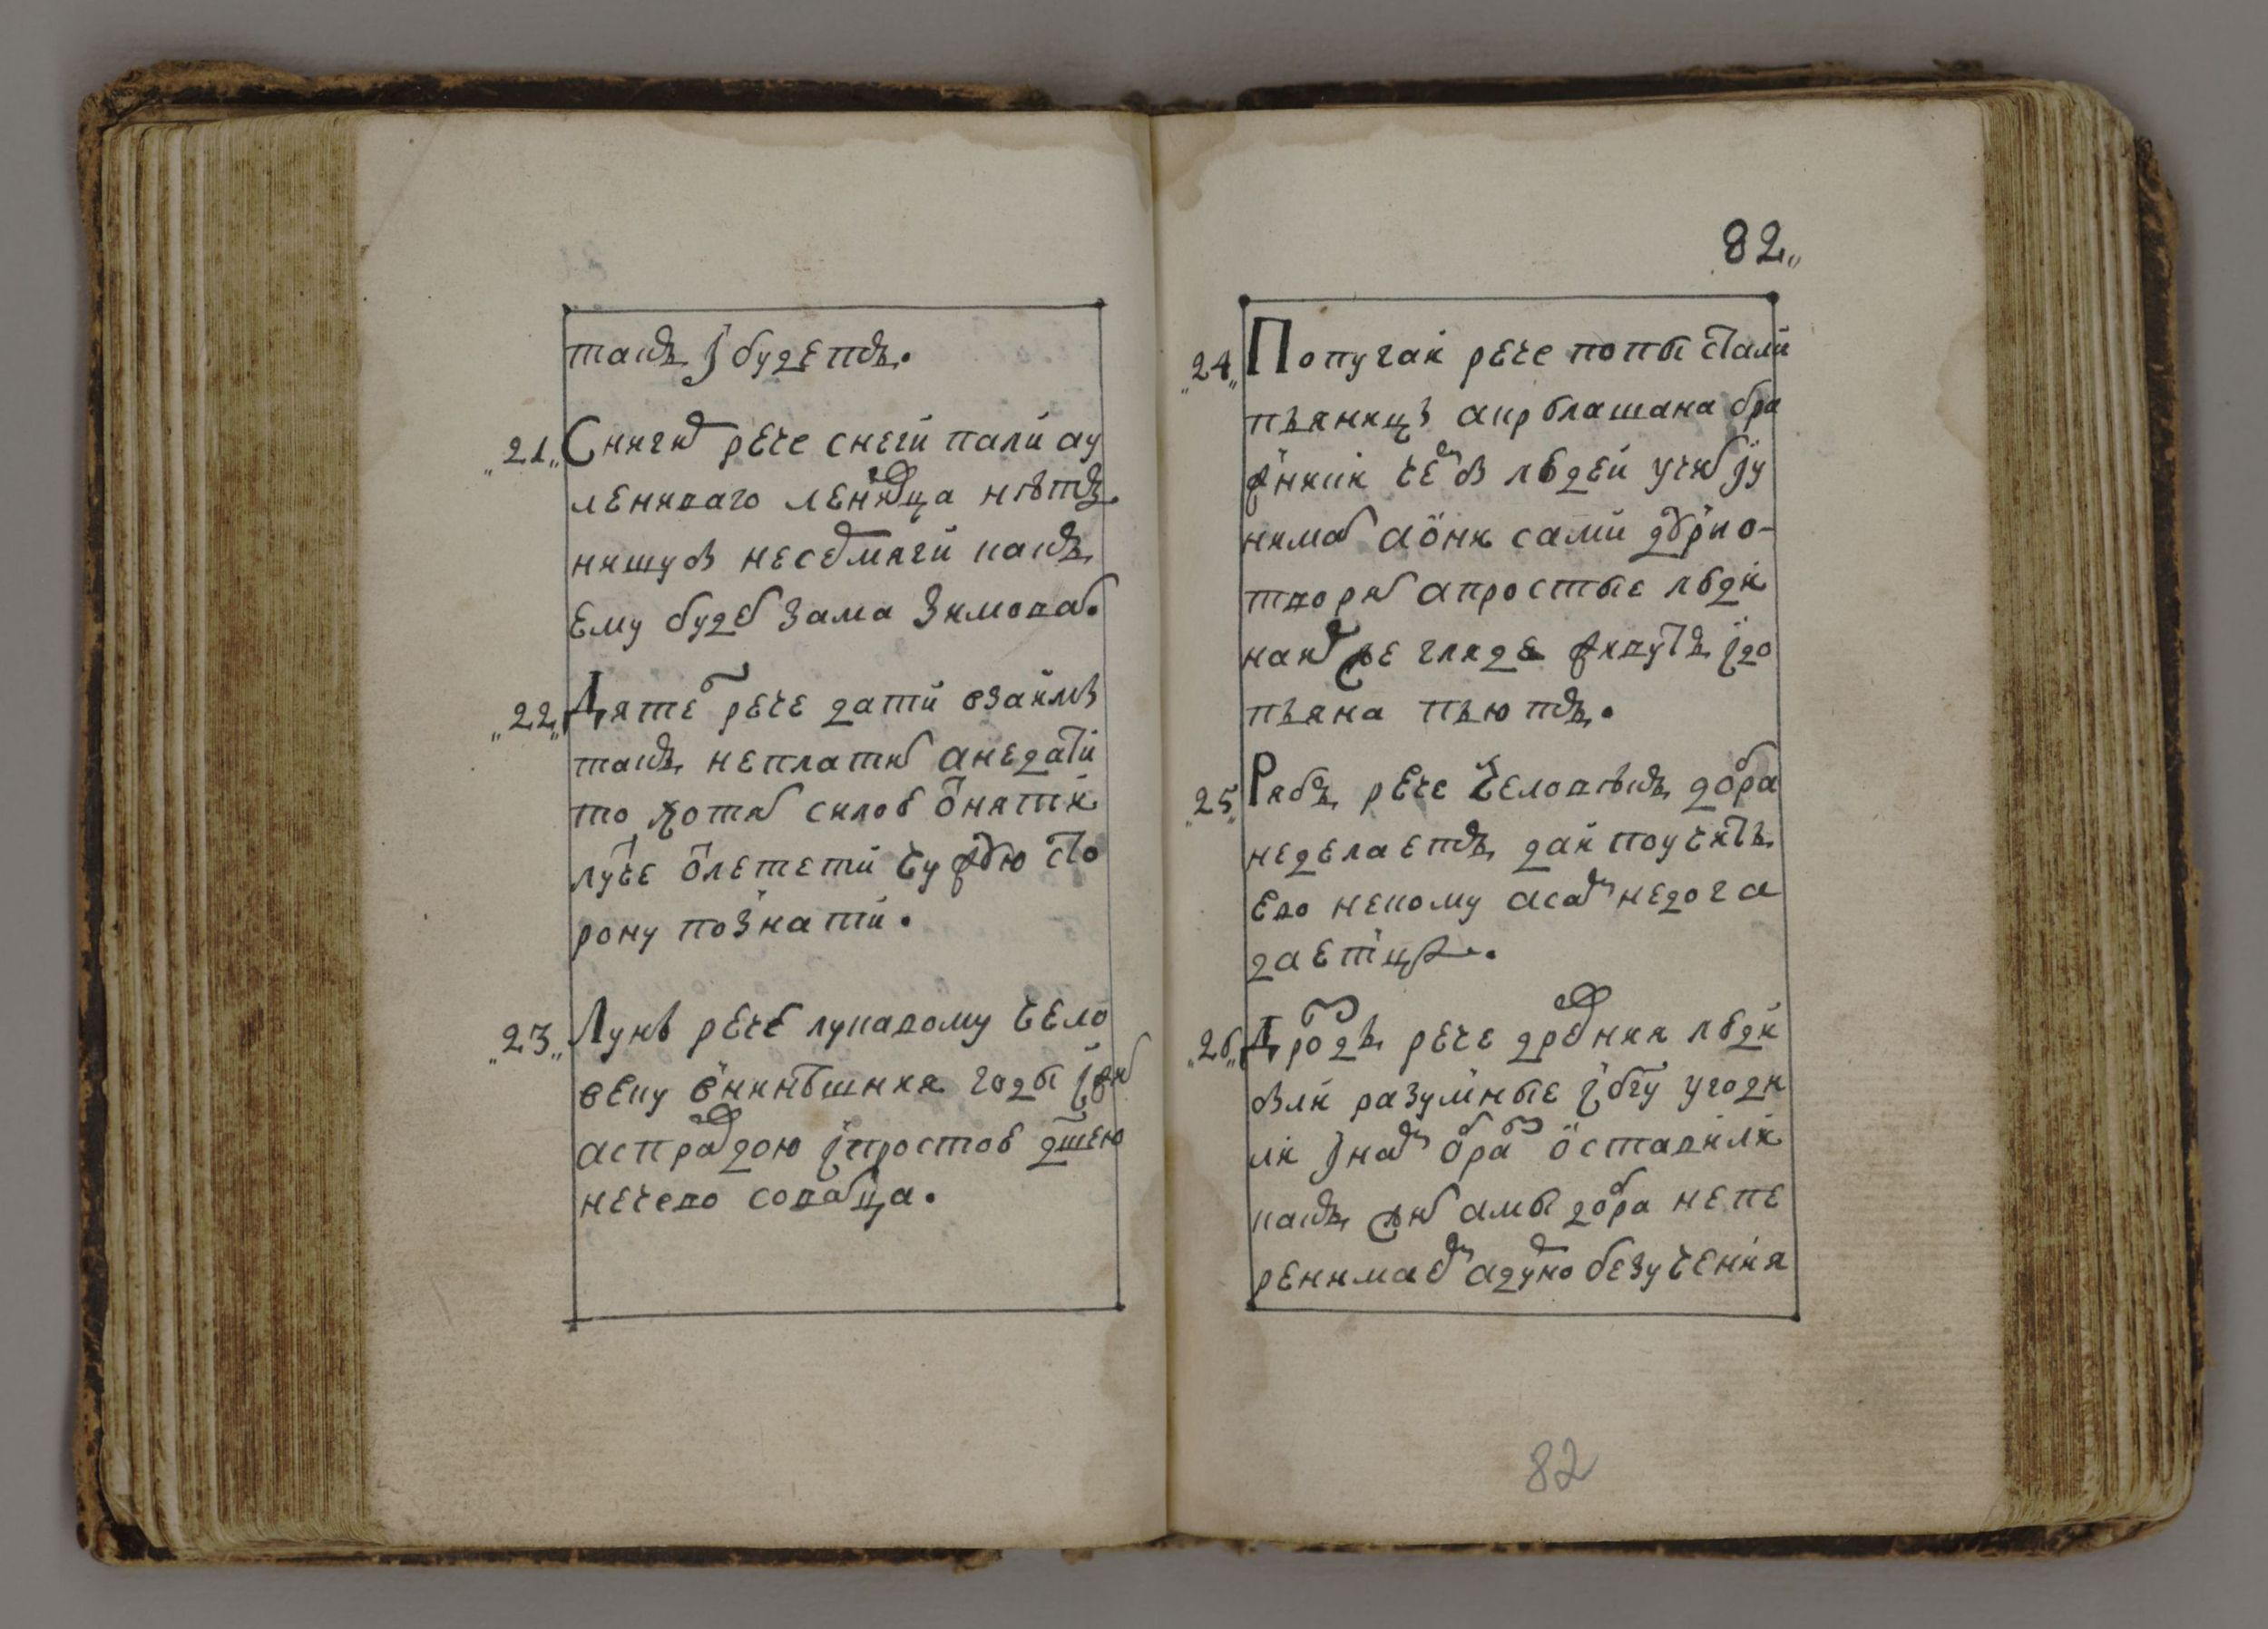 такъ ӏ будетъ.
21 Снигиⷬ рече снеги пали а у
лениваго лениⷡца нѣтъ
ни шуⷠ не сеⷬмяги какъ
ему будеⷮ зама зимоваⷮ.
22 Дятеⷧ рече дати взаймѣ
такъ неплатиⷮ а недати
то хотяⷮ силоѵ ѿняти
луче ѿлетети чужⷣую сто
рону познати.
23 Лунѣ рече лукавому чело
веку в нинѣшния годы ӏ жиⷮ
а с праⷡдою ӏ простоѵ дш҃ею
нечево соваⷮца.
82
24 Попугай рече попы стали
пьяницѣ а кр блашана бра
жники чеⷨ ѿ людей учиⷮ ӏ у
нимаⷮ а ѻни сами дꙋрно
творяⷮ а простые люди
на ниⷯ же глядя живутъ ӏ до
пьяна пьютъ.
25 Рябъ рече человѣкъ добра
неделаетъ да и поучить
ево некому а саⷨ недога
даетца.
26 Дроздъ рече дреⷡния люди
были разумные ӏ бг҃у угоди
ли ӏ наⷨ ѻбраⷥ ѻставили
какъ жиⷮ а мы добра непе
ренимаеⷨ а дуⷬно без учения
82